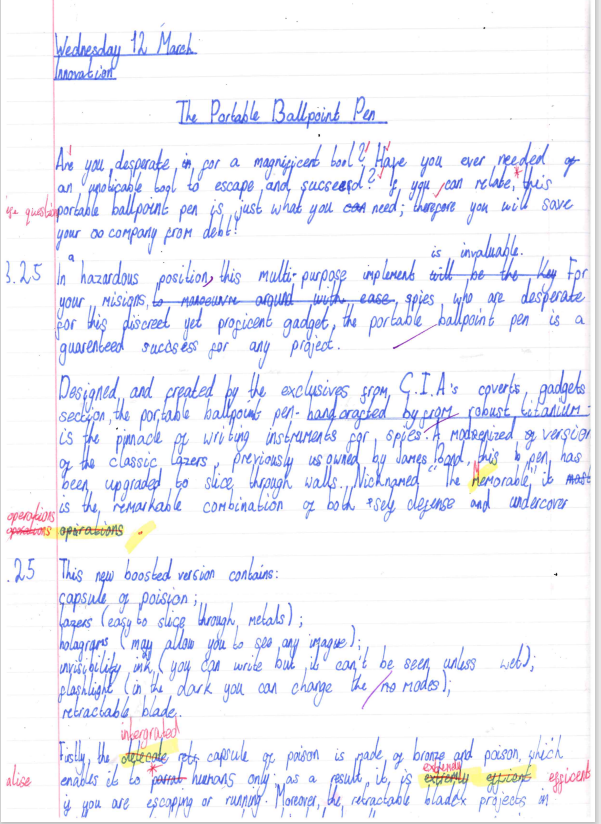 Wednesday 12 March
Innovation
The Portable Ballpoint Pen
Are you desperate in for a magnificent tool? Have you ever needed
an unoticable tool to escape and sucseed? If you can relate, this
portable ballpoint pen is just what you can need; therefore you will save
your company from debt!
is invaluable.
3.25 In a hazardous position, this multi-purpose implement will be the key For
your misions, to manoeuvre around with ease, spies, who are desperate
for this discreet yet proficent gadget, the portable ballpoint pen is a
guarenteed sucdsess for any project.
Designed and created by the exclusives from C.I.A's coverts gadgets
section, the portable ballpoint pen- handcrafted by from robust titanium-
is the pinnacle of writing instruments for spies. A modernized of version
of the classic lazers, previously us owned by James Bond, this pen, has
been upgraded to slice through walls. Nicknamed "The Memorable", it
is the remarkable combination of both self defense and undercover
operations
.25 This new boosted version contains:
capsule of poision;
lazers (easy to slice through metals);
holagrams (may allow you to see any imague);
invisibility ink (you can write but it can't be seen unless wet);
flashlight (in the dark you can change the modes);
retractable blade.
intergrated
Firstly, the delicate capsule of poison is made of bronze and poison, which
alise enables it to humans only; as a result, it is efficent
if you are escaping or running. Moreover, the retractable blade projects in